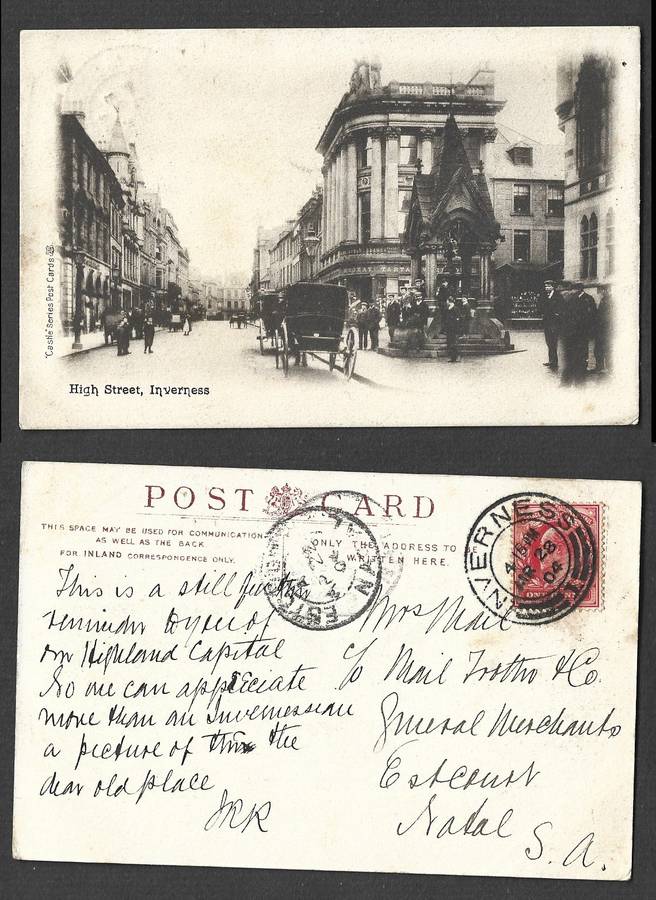 "Castle" Series Post Cards
High Street, Inverness
POST CARD
THIS SPACE MAY BE USED FOR COMMUNICATION
AS WELL AS THE BACK.
FOR INLAND CORRESPONDENCE ONLY.
ONLY THE ADDRESS TO BE
WRITTEN HERE.
INVERNESS
4.15 PM
AP 28
04
This is a still further
reminder to you of
our Highland Capital
No one can appreciate
more than an Invernessian
a picture of the
dear old place
JKK
Mrs Mail
c/o Mail & Co.
General Merchants
Estcourt
Natal
S. A.